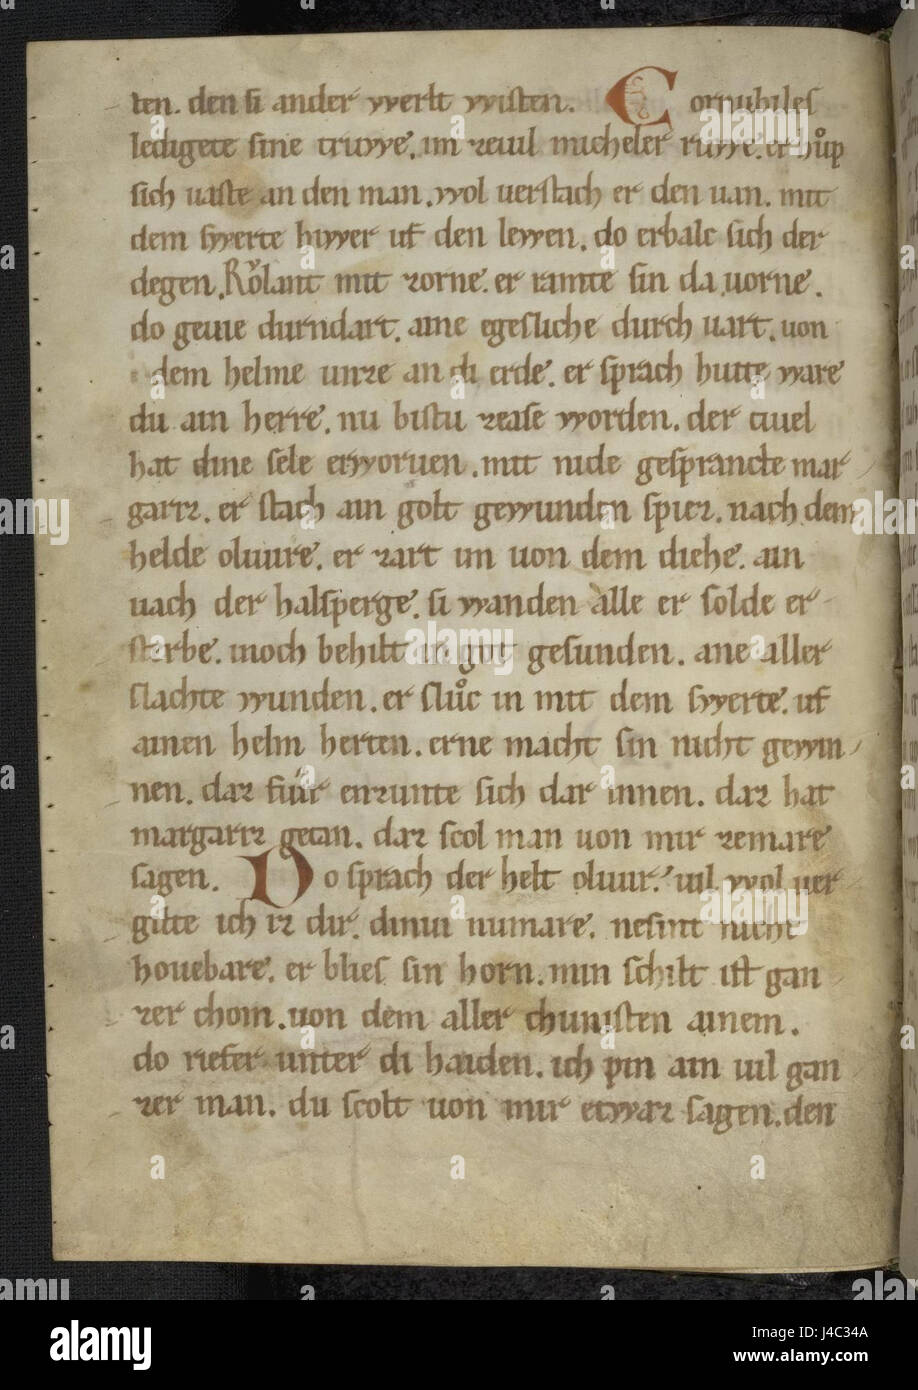 ten. den si ander werlt wisten. Cornubiles
ledigete sine truwe. im zewl micheler ruwe. er hůp
sich uaste an den man. wol uerstach er den uan. mit
dem swerte hiwer uf den lewen. do erbalc sich der
degen. Rǒlant mit zorne. er ramte sin da uorne.
do geuie durndart. aine egesliche durch uart. uon
dem helme unze an di erde. er sprach hutte ware
du ain herre. nu bistu zease worden. der tiuel
hat dine sele erworuen. mit nide gesprancte mar
gariz. er stach ain golt gewunden spiez. nach dem
helde oliuire. er zart im uon dem diehe. ain
uach der halsperge. si wanden alle er solde er
sterbe. inoch behilt in got gesunden. ane aller
slachte wunden. er slůc in mit dem swerte. uf
ainen helm herten. erne macht sin nicht gewin
nen. daz fiur enzunte sich dar innen. daz hat
margariz getan. daz scol man uon mir zemare
sagen. Do sprach der helt oliuir. uil wol uer
gilte ich iz dir. diniu niumare. nesint nicht
houebare. er blies sin horn. min schilt ist gan
zer chom. uon dem aller chunisten ainem.
do riefer unter di haiden. ich pin ain uil gan
zer man. du scolt uon mir etwaz sagen. den
alamy
Image ID: J4C34A
www.alamy.com